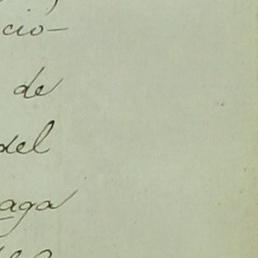 cio-
de
del
aga